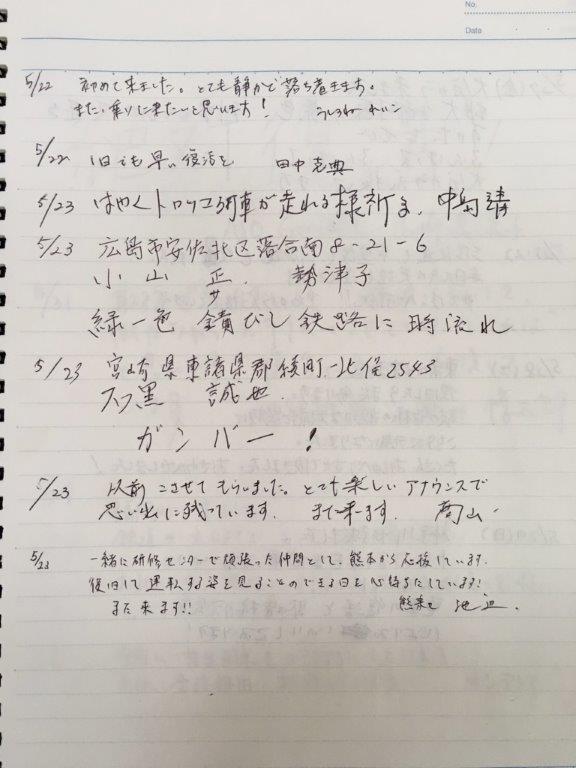 No.
Date
5/22 初めて来ました。とても静かで落ち着きます。
また、乗りに来たいと思います!
5/22 1日でも早い復活を 田中
5/23 はやくトロッコ列車が走れる様祈る、中島 靖
5/23 広島市安佐北区落合南8-21-6
小山 正 勢津子
サ
緑一色 錆びし鉄路に時流れ
5/23 宮崎県東諸県郡綾町北俣2543
石黒 誠也
ガンバー!
5/23 以前 こさせてもらいました。とても楽しいアナウンスで
思い出に残っています。 また来ます。 高山
5/23 一緒に研修センターで頑張った仲間として、熊本から応援しています。
復旧して運転する姿を見ることのできる日を心待ちにしています!
また来ます!! 熊本